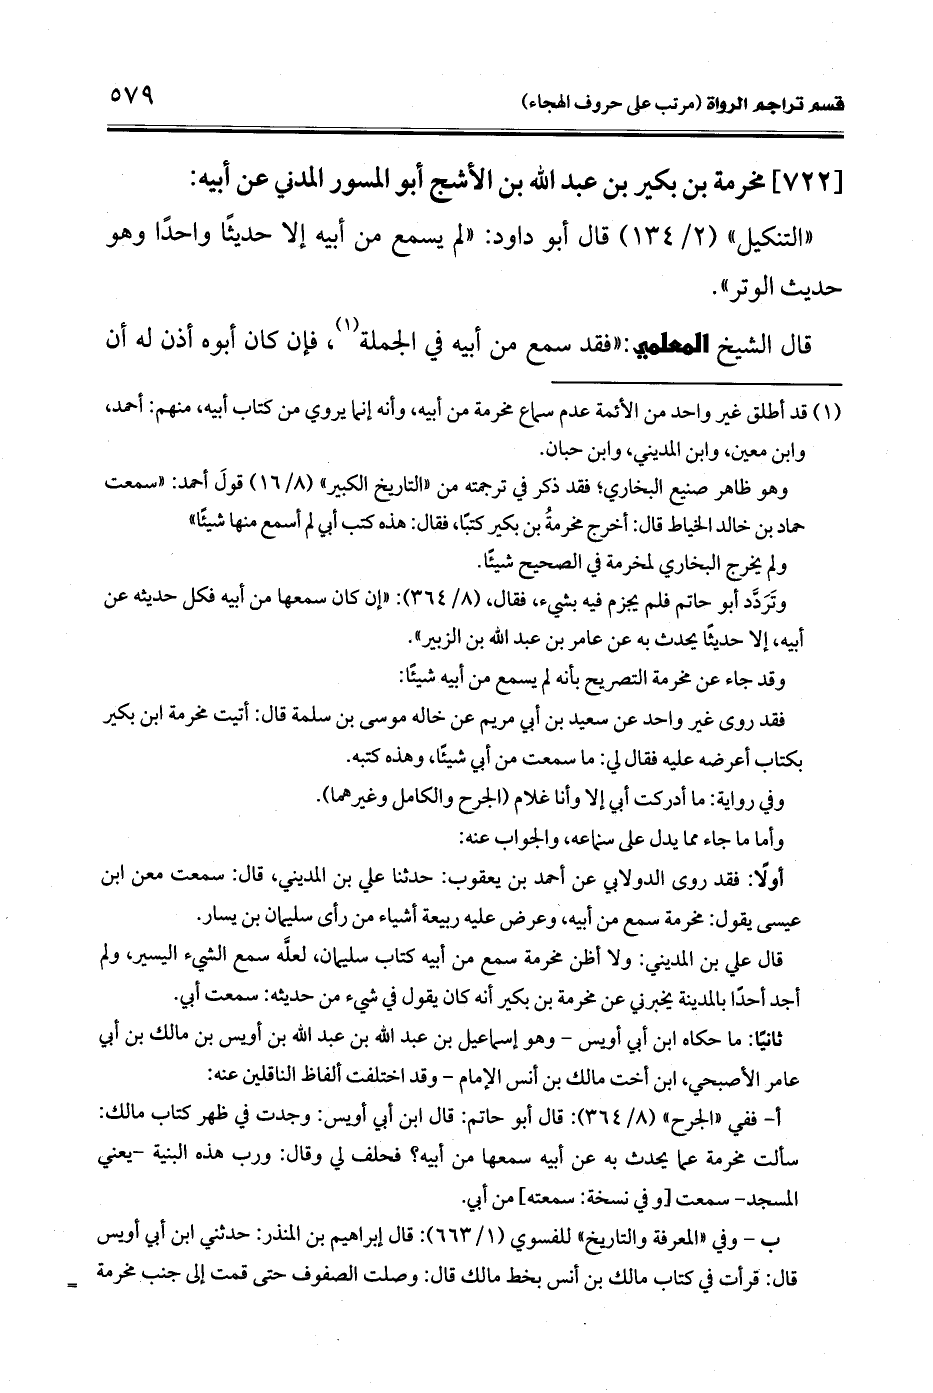 قسم تراجم الرواة (مرتب على حروف الهجاء)
٥٧٩
[٧٢٢] مخرمة بن بكير بن عبد الله بن الأشج أبو المسور المدني عن أبيه:
«التنكيل» (٢/ ١٣٤) قال أبو داود: «لم يسمع من أبيه إلا حديثًا واحدًا وهو
حديث الوتر».
قال الشيخ المعلمي:«فقد سمع من أبيه في الجملة(١)، فإن كان أبوه أذن له أن
(١) قد أطلق غير واحد من الأئمة عدم سماع مخرمة من أبيه، وأنه إنما يروي من كتاب أبيه، منهم: أحمد،
وابن معين، وابن المديني، وابن حبان.
وهو ظاهر صنيع البخاري؛ فقد ذكر في ترجمته من «التاريخ الكبير» (٨/ ١٦) قولَ أحمد: «سمعت
حماد بن خالد الخياط قال: أخرج مخرمةُ بن بكير كتبًا، فقال: هذه كتب أبي لم أسمع منها شيئًا»
ولم يخرج البخاري لمخرمة في الصحيح شيئًا.
وتَرَدَّد أبو حاتم فلم يجزم فيه بشيء، فقال، (٨/ ٣٦٤): «إن كان سمعها من أبيه فكل حديثه عن
أبيه، إلا حديثًا يحدث به عن عامر بن عبد الله بن الزبير».
وقد جاء عن مخرمة التصريح بأنه لم يسمع من أبيه شيئًا:
فقد روى غير واحد عن سعيد بن أبي مريم عن خاله موسى بن سلمة قال: أتيت مخرمة ابن بكير
بكتاب أعرضه عليه فقال لي: ما سمعت من أبي شيئًا، وهذه كتبه.
وفي رواية: ما أدركت أبي إلا وأنا غلام (الجرح والكامل وغيرهما).
وأما ما جاء مما يدل على سماعه، والجواب عنه:
أولًا: فقد روى الدولابي عن أحمد بن يعقوب: حدثنا علي بن المديني، قال: سمعت معن ابن
عيسى يقول: مخرمة سمع من أبيه، وعرض عليه ربيعة أشياء من رأى سليمان بن يسار.
قال علي بن المديني: ولا أظن مخرمة سمع من أبيه كتاب سليمان، لعلَّه سمع الشيء اليسير، ولم
أجد أحدًا بالمدينة يخبرني عن مخرمة بن بكير أنه كان يقول في شيء من حديثه: سمعت أبي.
ثانيًا: ما حكاه ابن أبي أويس – وهو إسماعيل بن عبد الله بن عبد الله بن أويس بن مالك بن أبي
عامر الأصبحي، ابن أخت مالك بن أنس الإمام – وقد اختلفت ألفاظ الناقلين عنه:
أ- ففي «الجرح» (٨/ ٣٦٤): قال أبو حاتم: قال ابن أبي أويس: وجدت في ظهر كتاب مالك:
سألت مخرمة عما يحدث به عن أبيه سمعها من أبيه؟ فحلف لي وقال: ورب هذه البنية -يعني
المسجد- سمعت [و في نسخة: سمعته] من أبي.
ب - وفي «المعرفة والتاريخ» للفسوي (١/ ٦٦٣): قال إبراهيم بن المنذر: حدثني ابن أبي أويس
قال: قرأت في كتاب مالك بن أنس بخط مالك قال: وصلت الصفوف حتى قمت إلى جنب مخرمة =